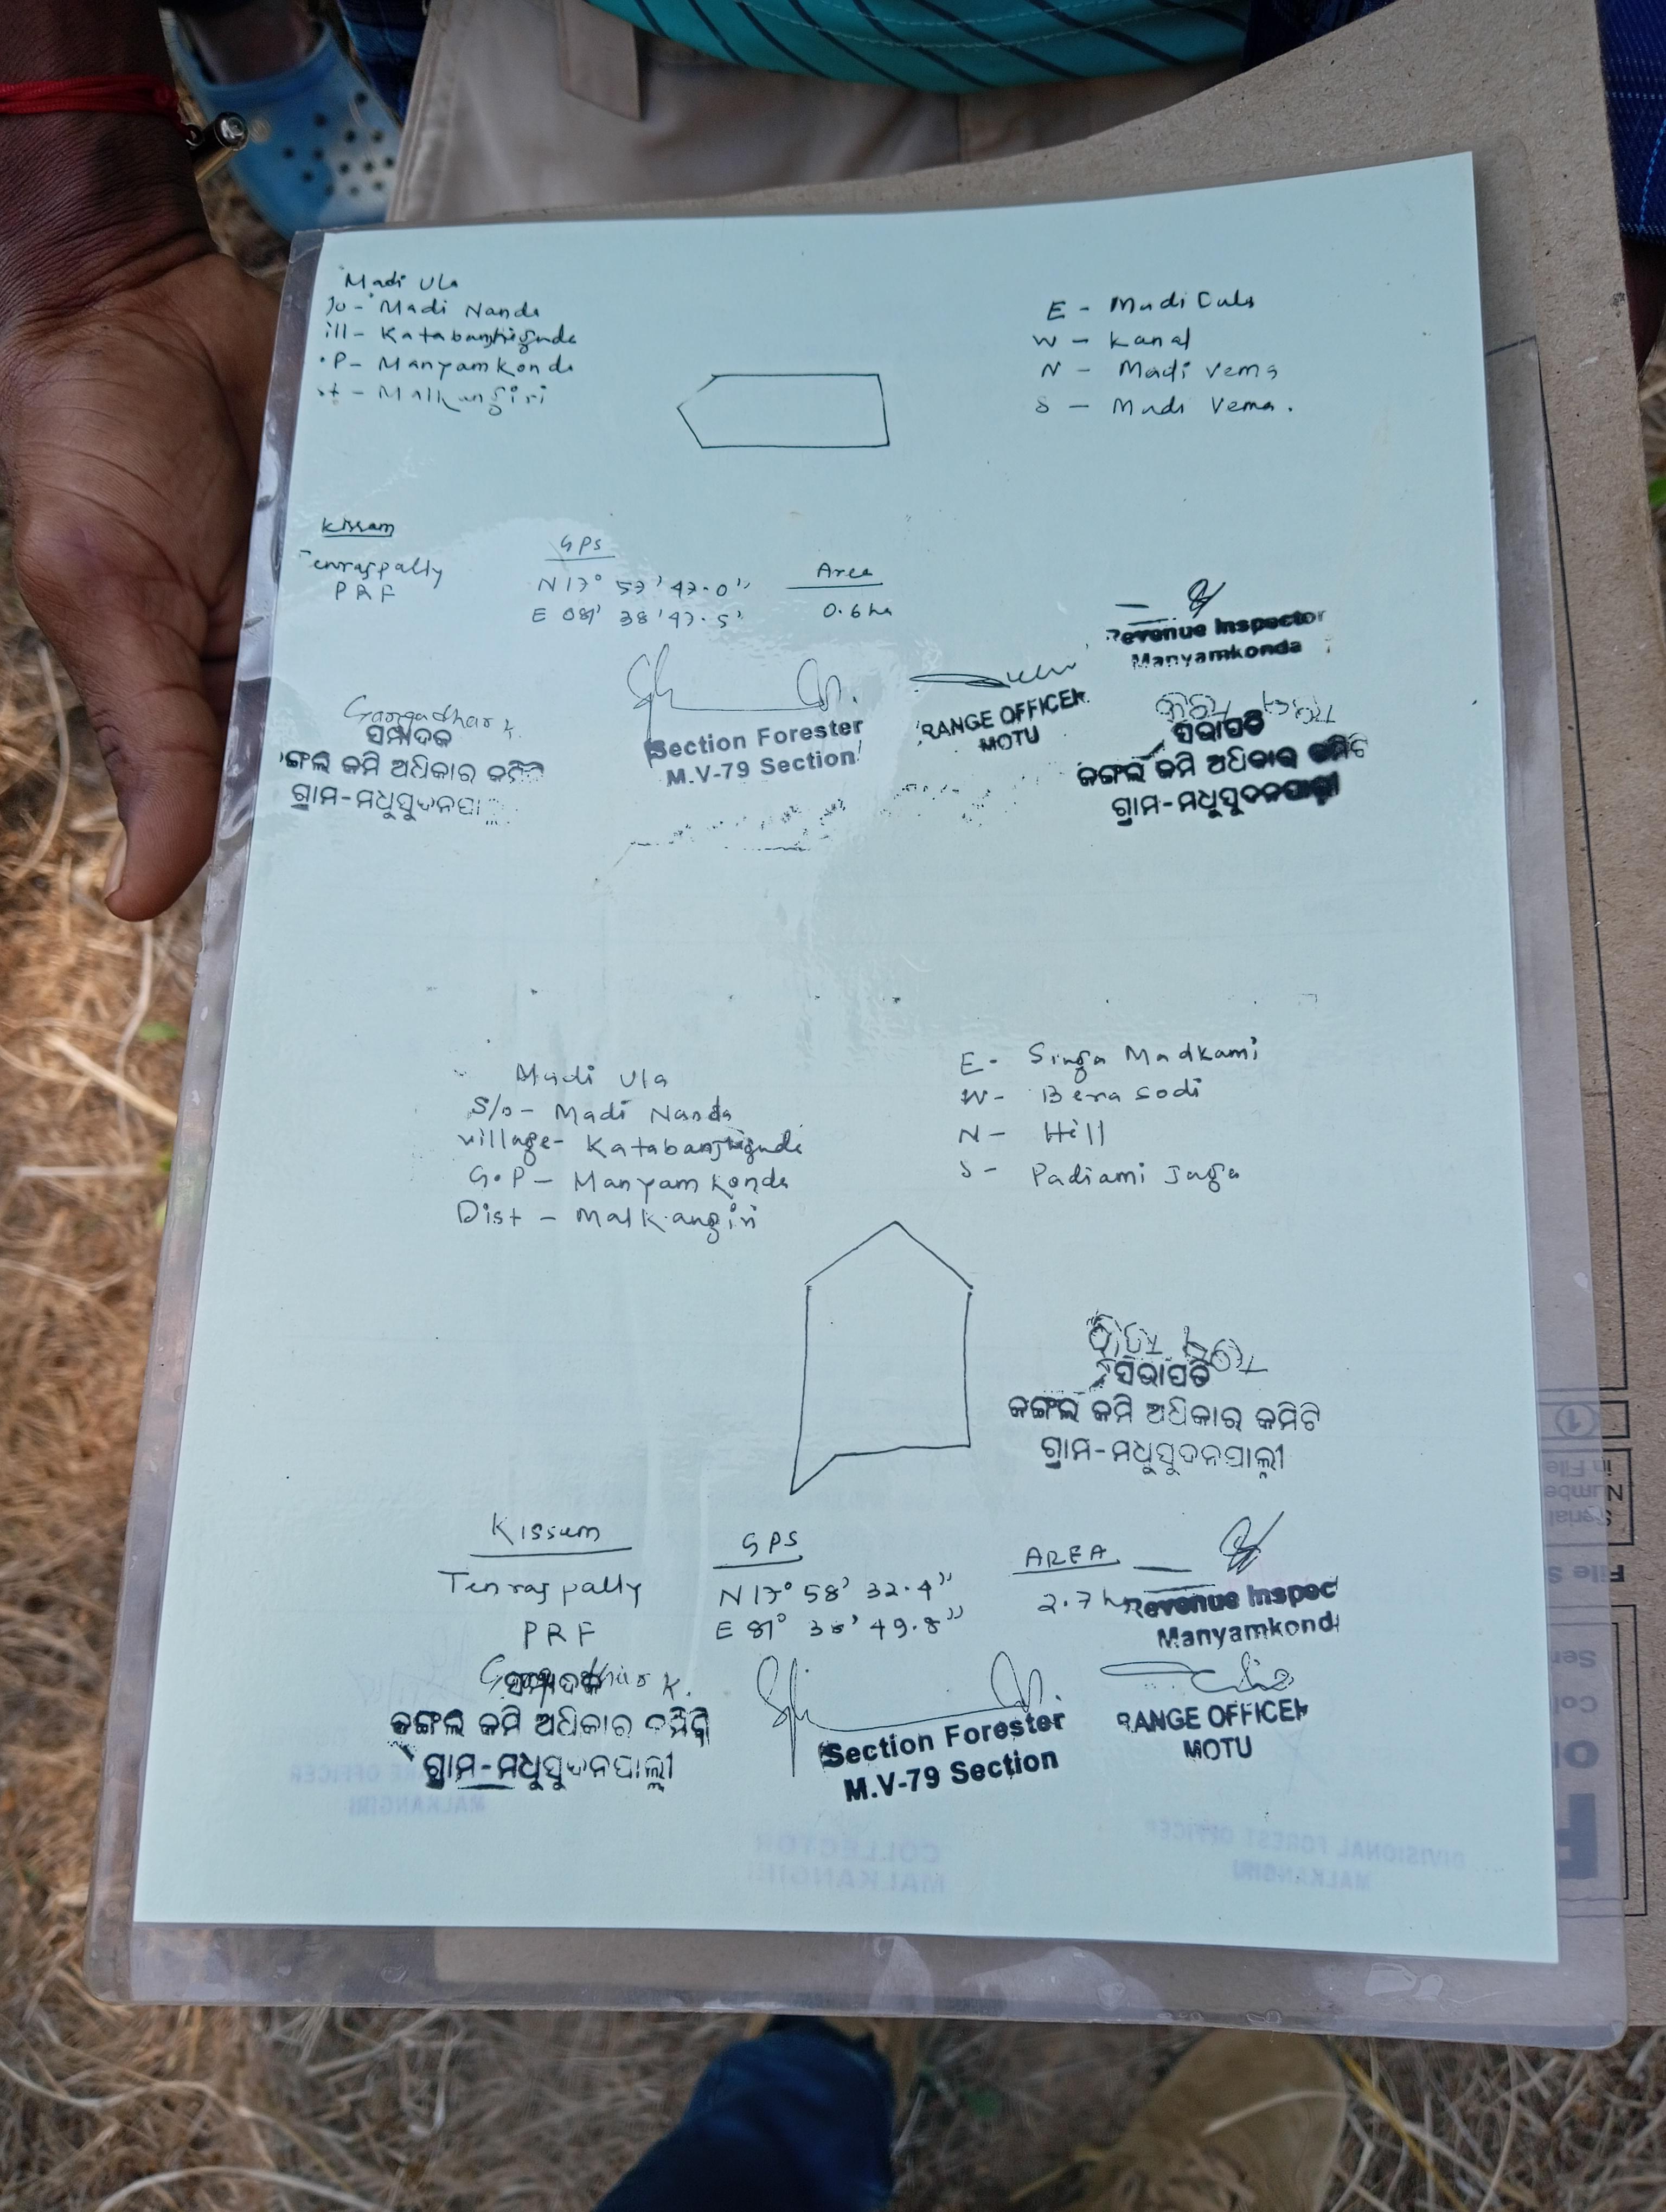 Madi Ula
Jo - Madi Nanda
ill - Katabanjhiguda
.P - Manyamkonda
st - Malkangiri
E - Madi Cula
W - Kanal
N - Madi Vema
S - Madi Vema.
Kissam
Tenraspally
PRF
GPS
N 17° 57' 47.0"
E 081° 38' 47.5'
Area
0.6 ha
Revenue Inspector
Manyamkonda
Gangadhar K.
ସମ୍ପାଦକ
ଙ୍ଗଲ ଜମି ଅଧିକାର କମିଟି
ଗ୍ରାମ-ମଧୁସୁଦନପା
Section Forester
M.V-79 Section
RANGE OFFICER
MOTU
ସଭାପତି
ଜଙ୍ଗଲ ଜମି ଅଧିକାର କମିଟି
ଗ୍ରାମ-ମଧୁସୁଦନପାଲ୍ଲୀ
Madi Ula
S/o - Madi Nanda
village - Katabanjhiguda
G.P - Manyamkonda
Dist - Malkangiri
E - Singa Madkami
W - Bera Sodi
N - Hill
S - Padiami Jaga
ସଭାପତି
ଜଙ୍ଗଲ ଜମି ଅଧିକାର କମିଟି
ଗ୍ରାମ-ମଧୁସୁଦନପାଲ୍ଲୀ
Kissam
Tenraspally
PRF
GPS
N 17° 58' 32.4"
E 81° 36' 49.8"
AREA
2.7 h
Revenue Inspec
Manyamkond
Gangadhar K.
ସମ୍ପାଦକ
ଜଙ୍ଗଲ ଜମି ଅଧିକାର କମିଟି
ଗ୍ରାମ-ମଧୁସୁଦନପାଲ୍ଲୀ
Section Forester
M.V-79 Section
RANGE OFFICER
MOTU
DIVISIONAL FOREST OFFICER
MALKANGIRI
COLLECTOR
MALKANGIRI
MALKANGIRI